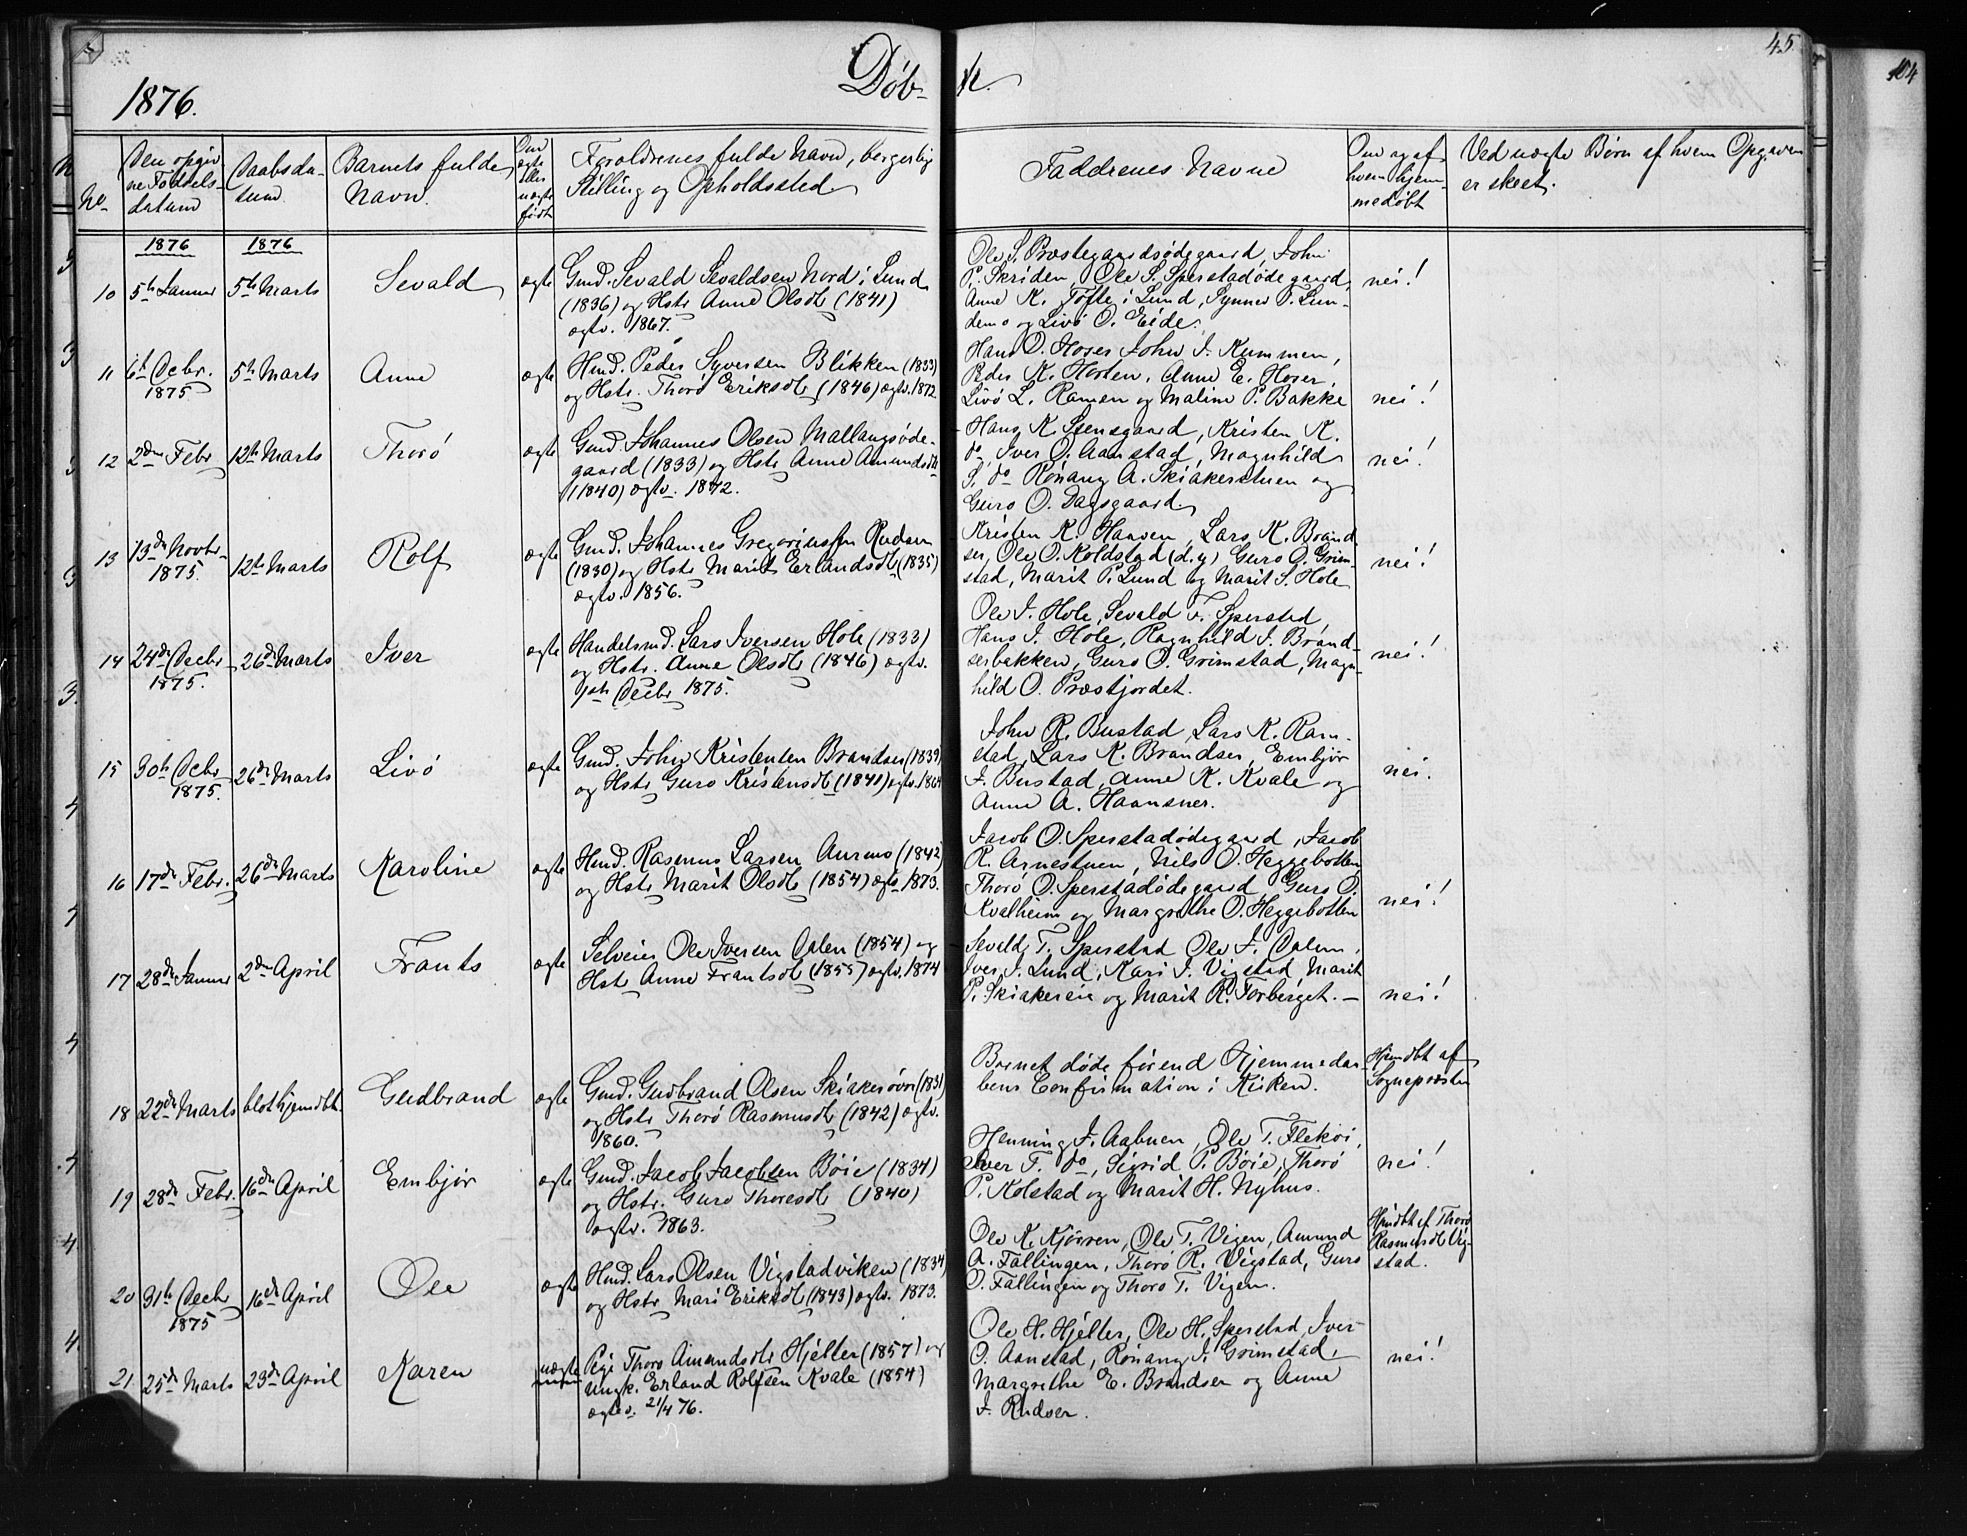 45
104
1876.
Døb-
te.
No.
Den opgiv-
ne Fødsels-
datum
Daabsda-
tum
Barnets fulde
Navn.
Om
ægte
eller
uægte
født
Forældrenes fulde Navn, borgerlig
Stilling og Opholdssted
Faddrenes Navne
Om og af
hvem hjem-
medøbt
Ved uægte Børn af hvem Opgaven
er skeet.
1876
1876
10 5te Januar 5te Marts Sevald ægte
Gmd. Sevald Sevaldsen Nord i Lund
(1836) og Hstr Anne Olsdtr (1841)
ægtv. 1867.
Ole S. Præstegaardsødegaard, John
P. Skriden, Ole S. Sperstadødegaard,
Anne K. Tofte i Lund, Synnev P. Lun-
demo og Livó O. Eide.
nei!
11 6te Decbr. 1875 5te Marts Anne ægte
Hmd. Peder Syversen Blikken (1833)
og Hstr. Thoró Eriksdtr (1846) ægtv. 1872
Hans O. Hoser John J. Kummen,
Peder K. Horten, Anne E. Hoser,
Livó L. Ramen og Maline P. Bakke
nei!
12 2den Febr. 12te Marts Thoró ægte
Gmd. Johannes Olsen Mallangsøde-
gaard (1833) og Hstr Anne Amundsdtr
(1840) ægtv. 1872.
Hans K. Steensgaard, Kristen K.
do Iver O. Aanstad, Magnhild
S. do Rónaug A. Skiakerstuen og
Guro O. Dagsgaard.
nei!
13 13de Novbr. 1875. 12te Marts Rolf ægte
Gmd. Johannes Gregoriussen Rudsen
(1830) og Hstr Marit Erlandsdtr (1835)
ægtv. 1856.
Kristen K. Haaven, Lars K. Brænd-
ser, Ole O. Koldstad (d.y.) Guro O. Grim-
stad, Marit P. Lund og Marit S. Hole
nei!
14 24de Decbr 1875. 26de Marts Iver ægte
Handelsmd. Lars Iversen Hole (1833)
og Hstr. Anne Olsdtr (1846) ægtv.
Decbr 1875.
Ole I. Hole, Sevald T. Sperstad,
Hans I. Hole, Ragnhild I. Brænd-
serbakken, Guro O. Grimstad, Magn-
hild O. Præstjordet.
nei!
15 30te Decbr 1875. 26de Marts Livó ægte
Gmd. John Kristensen Brændser (1839)
og Hstr Guro Kristensdtr (1841) ægtv. 1864
John R. Bustad, Lars K. Ram-
stad, Lars K. Brændser, Embjør
I. Bustad, Anne K. Kvale og
Anne A. Haansner.
nei.
16 17de Febr. 26de Marts Karoline ægte
Hmd. Rasmus Larsen Aurmo (1842)
og Hstr Marit Olsdtr (1854) ægtv. 1873.
Jacob O. Sperstadødegaard, Jacob
R. Arnestuen, Niels O. Heggebotten,
Thoró O. Sperstadødegaard Guro O.
Kvalheim og Margrethe O. Heggebotten
nei!
17 28de Januar 2den April Frants ægte
Selveier Ole Iversen Dalen (1854) og
Hstr Anne Frantsdtr (1855) ægtv. 1874
Sevald T. Sperstad Ole I. Dalen,
Iver I. Lund, Kari I. Vigstad, Marit
P. Skiakereie og Marit R. Forberget. —
nei!
18 22de Marts blot hjemdbt. Gudbrand ægte
Gmd. Gudbrand Olsen Skiakerøvre (1831)
og Hstr Thoró Rasmusdtr (1842) ægtv.
1860.
Barnet døde førend Hjemmedaa-
bens Confirmation i Kirken.
Hjemdbt af
Sognepræsten
19 28de Febr. 16de April Embjør ægte
Gmd. Jacob Jacobsen Bøie (1834)
og Hstr. Guro Thoresdtr (1840)
ægtv. 1863.
Henning J. Aabuen, Ole T. Flekøi,
Iver T. do, Sigrid P. Bøie, Thoró
P. Kolstad og Marit H. Nyhus.
nei!
20 31te Decbr 1875 16de April Ole ægte
Hmd. Lars Olsen Vigstadviken (1834)
og Hstr Mari Eriksdtr (1843) ægtv. 1873.
Ole K. Kjørren, Ole T. Vigen, Amund
A. Fallingen, Thoró R. Vigstad, Guro
O. Fallingen og Thoro T. Vigen.
Hjmdbt af Thoró
Rasmusdtr Vig-
stad.
21 25de Marts 23de April Karen uægte
Pige Thoro Amundsdtr Hjelter (1857) og
Ungk. Erland Rolfsen Kvale (1854)
ægtev. 21/4 76.
Ole H. Hjelter, Ole H. Sperstad, Iver
O. Aanstad, Rónaug I. Grimstad,
Margrethe E. Brændser og Anne
J. Rudser.
nei!